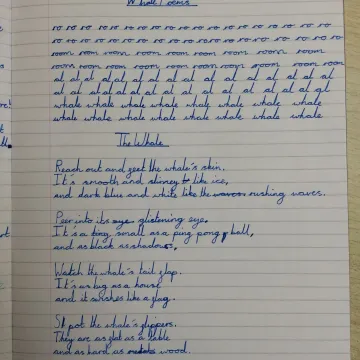 Whale Poems
ro ro ro ro ro ro ro ro ro ro ro ro ro ro ro ro
ro ro ro ro ro ro ro ro ro ro ro ro ro ro ro ro ro
room room room room room room room room room
room room room room room room room room room
al al al al al al al al al al al al al al
al al al al al al al al al al al al al al al
whale whale whale whale whale whale whale whale
whale whale whale whale whale whale whale whale
The Whale
Reach out and feel the whale's skin.
It's smooth and like ice,
and dark blue and white like the waves rushing waves.
Peer into its eye glistening eye,
It's a tiny, small as a ping pong ball,
and as black as shadows,
Watch the whale's tail flap.
It's as big as a house
and it swishes like a flag.
Spot the whale's flippers.
They are as flat as a table
and as hard as wood.